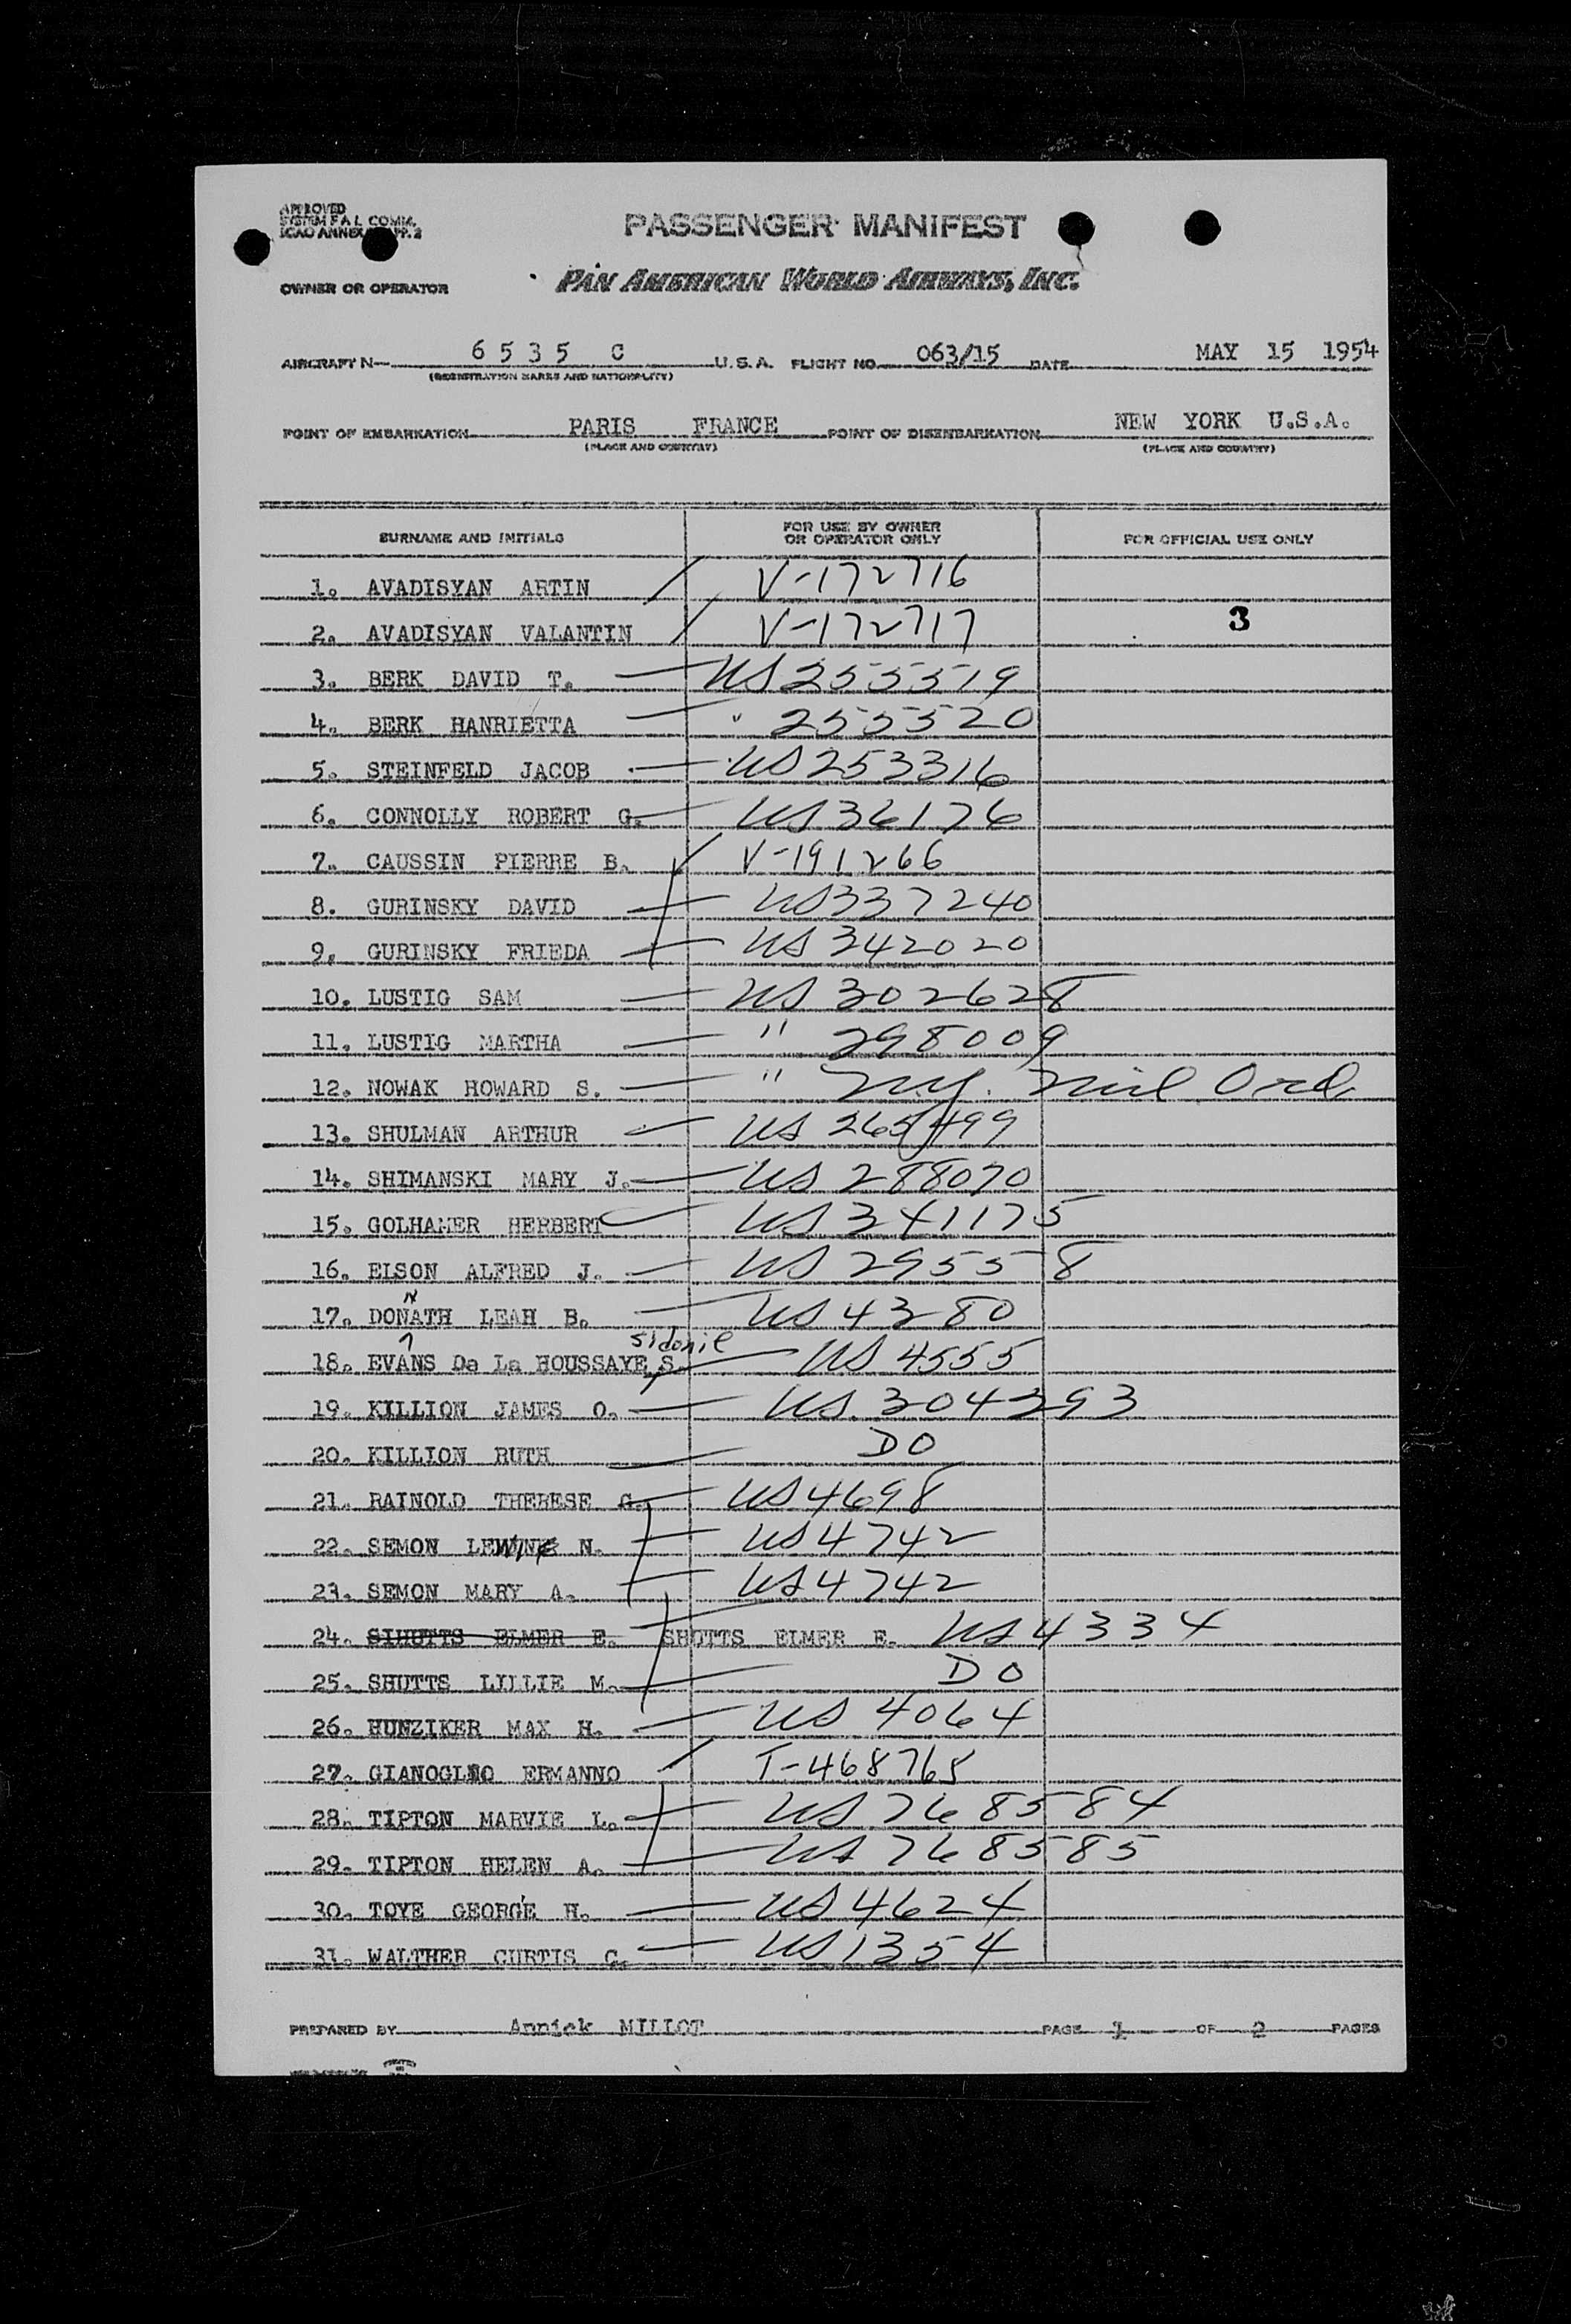 APPROVED
SYSTEM F A L COMM.
ICAO ANNEX APP. 2
PASSENGER MANIFEST
OWNER OR OPERATOR PAN AMERICAN WORLD AIRWAYS, INC.
AIRCRAFT N— 6535 C U.S.A. FLIGHT NO. 063/15 DATE MAY 15 1954
(REGISTRATION MARKS AND NATIONALITY)
POINT OF EMBARKATION PARIS FRANCE POINT OF DISEMBARKATION NEW YORK U.S.A.
(PLACE AND COUNTRY) (PLACE AND COUNTRY)
SURNAME AND INITIALS FOR USE BY OWNER OR OPERATOR ONLY FOR OFFICIAL USE ONLY
1. AVADISYAN ARTIN V-172716
2. AVADISYAN VALANTIN V-172717 3
3. BERK DAVID T. US 255519
4. BERK HANRIETTA " 255520
5. STEINFELD JACOB US 253316
6. CONNOLLY ROBERT G. US 36176
7. CAUSSIN PIERRE B. V-191266
8. GURINSKY DAVID US 337240
9. GURINSKY FRIEDA US 342020
10. LUSTIG SAM US 302628
11. LUSTIG MARTHA " 298009
12. NOWAK HOWARD S. " Mil Ord
13. SHULMAN ARTHUR US 265499
14. SHIMANSKI MARY J. US 288070
15. GOLHAMER HERBERT US 341175
16. ELSON ALFRED J. US 29558
N
17. DONATH LEAH B. US 4380
sidonie
18. EVANS De La HOUSSAYE S. US 4555
19. KILLION JAMES O. US 304393
20. KILLION RUTH DO
21. RAINOLD THERESE G. US 4698
22. SEMON LEWINE N. US 4742
23. SEMON MARY A. US 4742
24. SIHUTTS ELMER E. SHUTTS ELMER E. US 4334
25. SHUTTS LILLIE M. DO
26. HUNZIKER MAX H. US 4064
27. GIANOGLIO ERMANNO T-468768
28. TIPTON MARVIE L. US 768584
29. TIPTON HELEN A. US 768585
30. TOYE GEORGE H. US 4624
31. WALTHER CURTIS C. US 1354
PREPARED BY Annick MILLOT PAGE 1 OF 2 PAGES